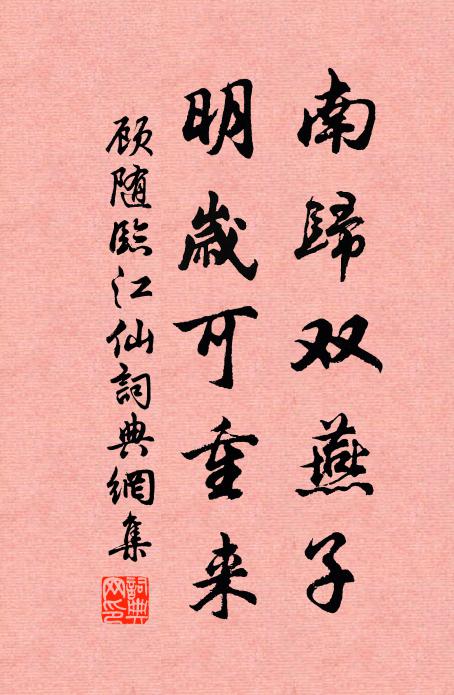 南歸双燕子
明歲可重来
顾随臨江仙詞典網集
詞典網印